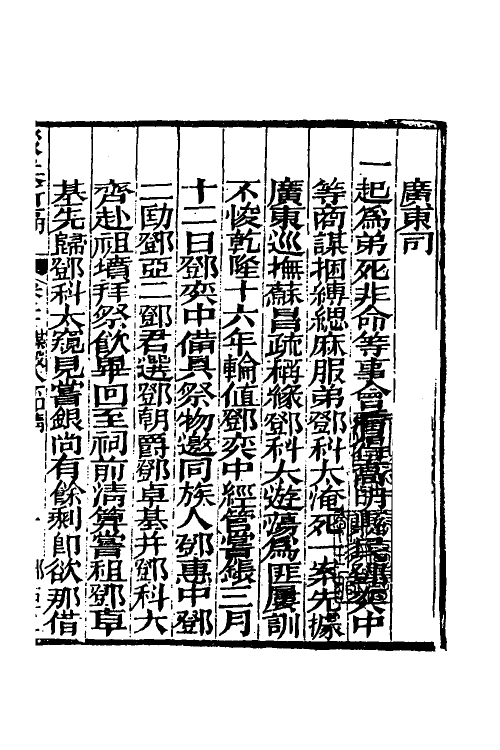 廣東司
一起爲弟死非命等事會民鄧奕中
等商謀捆縛緦麻服弟鄧科太淹死一案先據
廣東巡撫蘇昌疏稱緣鄧科太遊蕩爲匪屢訓
不悛乾隆十六年輪值鄧奕中經管嘗賬三月
十二日鄧奕中備具祭物邀同族人鄧惠中鄧
二勆鄧亞二鄧君選鄧朝爵鄧卓基并鄧科太
齊赴祖墳拜祭飲畢回至祠前清算嘗租鄧卓
基先歸鄧科太窺見嘗銀尚有餘剩卽欲那借